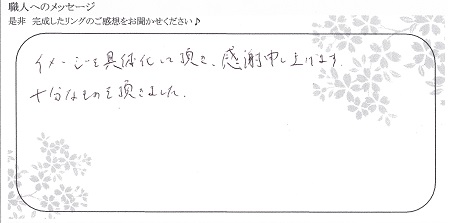 職人へのメッセージ
是非 完成したリングのご感想をお聞かせください♪
イメージを具体化して頂き、感謝申し上げます。
十分なものを頂きました。